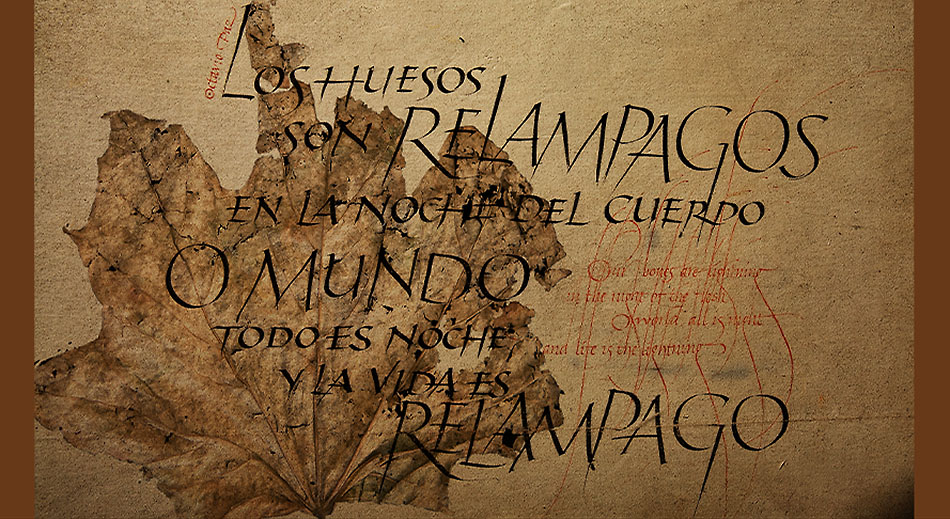 Octavio Paz
LOS HUESOS
SON RELAMPAGOS
EN LA NOCHE DEL CUERPO
O MUNDO
TODO ES NOCHE
Y LA VIDA ES
RELAMPAGO
Our bones are lightning
in the night of the flesh
O world, all is night
and life is the lightning